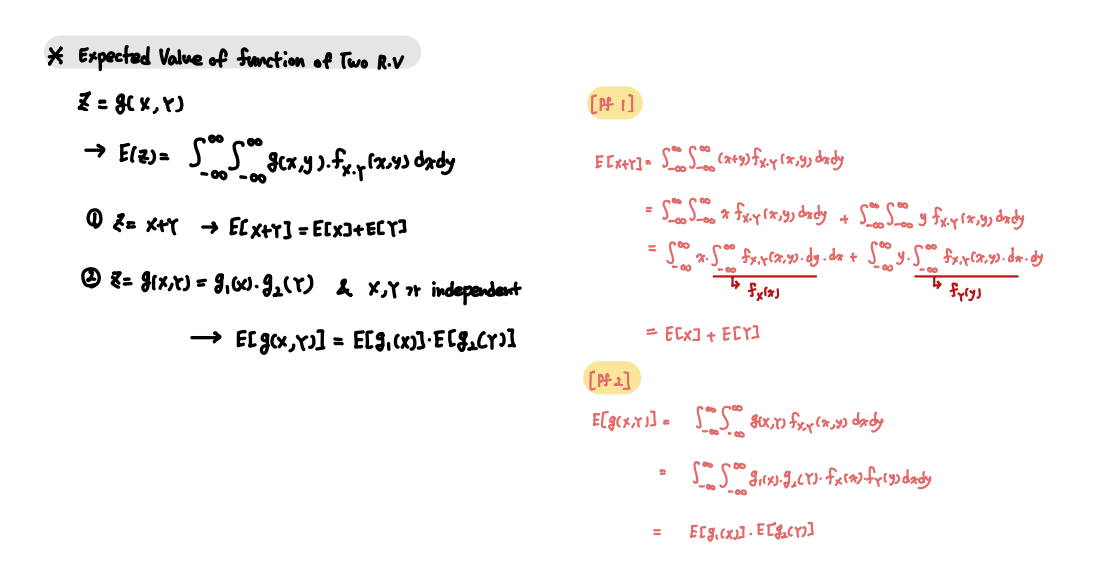 * Expected Value of function of Two R.V
Z = g(X, Y)
→ E(Z) = ∫_{-∞}^{∞} ∫_{-∞}^{∞} g(x,y)·f_{X,Y}(x,y) dxdy
① Z = X+Y → E[X+Y] = E[X]+E[Y]
② Z = g(X,Y) = g₁(X)·g₂(Y) & X,Y가 independent
→ E[g(X,Y)] = E[g₁(X)]·E[g₂(Y)]
[Pf 1]
E[X+Y] = ∫_{-∞}^{∞} ∫_{-∞}^{∞} (x+y) f_{X,Y}(x,y) dxdy
= ∫_{-∞}^{∞} ∫_{-∞}^{∞} x f_{X,Y}(x,y) dxdy + ∫_{-∞}^{∞} ∫_{-∞}^{∞} y f_{X,Y}(x,y) dxdy
= ∫_{-∞}^{∞} x·∫_{-∞}^{∞} f_{X,Y}(x,y)·dy·dx + ∫_{-∞}^{∞} y·∫_{-∞}^{∞} f_{X,Y}(x,y)·dx·dy
↳ f_X(x) ↳ f_Y(y)
= E[X] + E[Y]
[Pf 2]
E[g(X,Y)] = ∫_{-∞}^{∞} ∫_{-∞}^{∞} g(X,Y) f_{X,Y}(x,y) dxdy
= ∫_{-∞}^{∞} ∫_{-∞}^{∞} g₁(X)·g₂(Y)·f_X(x)·f_Y(y) dxdy
= E[g₁(X)]·E[g₂(Y)]